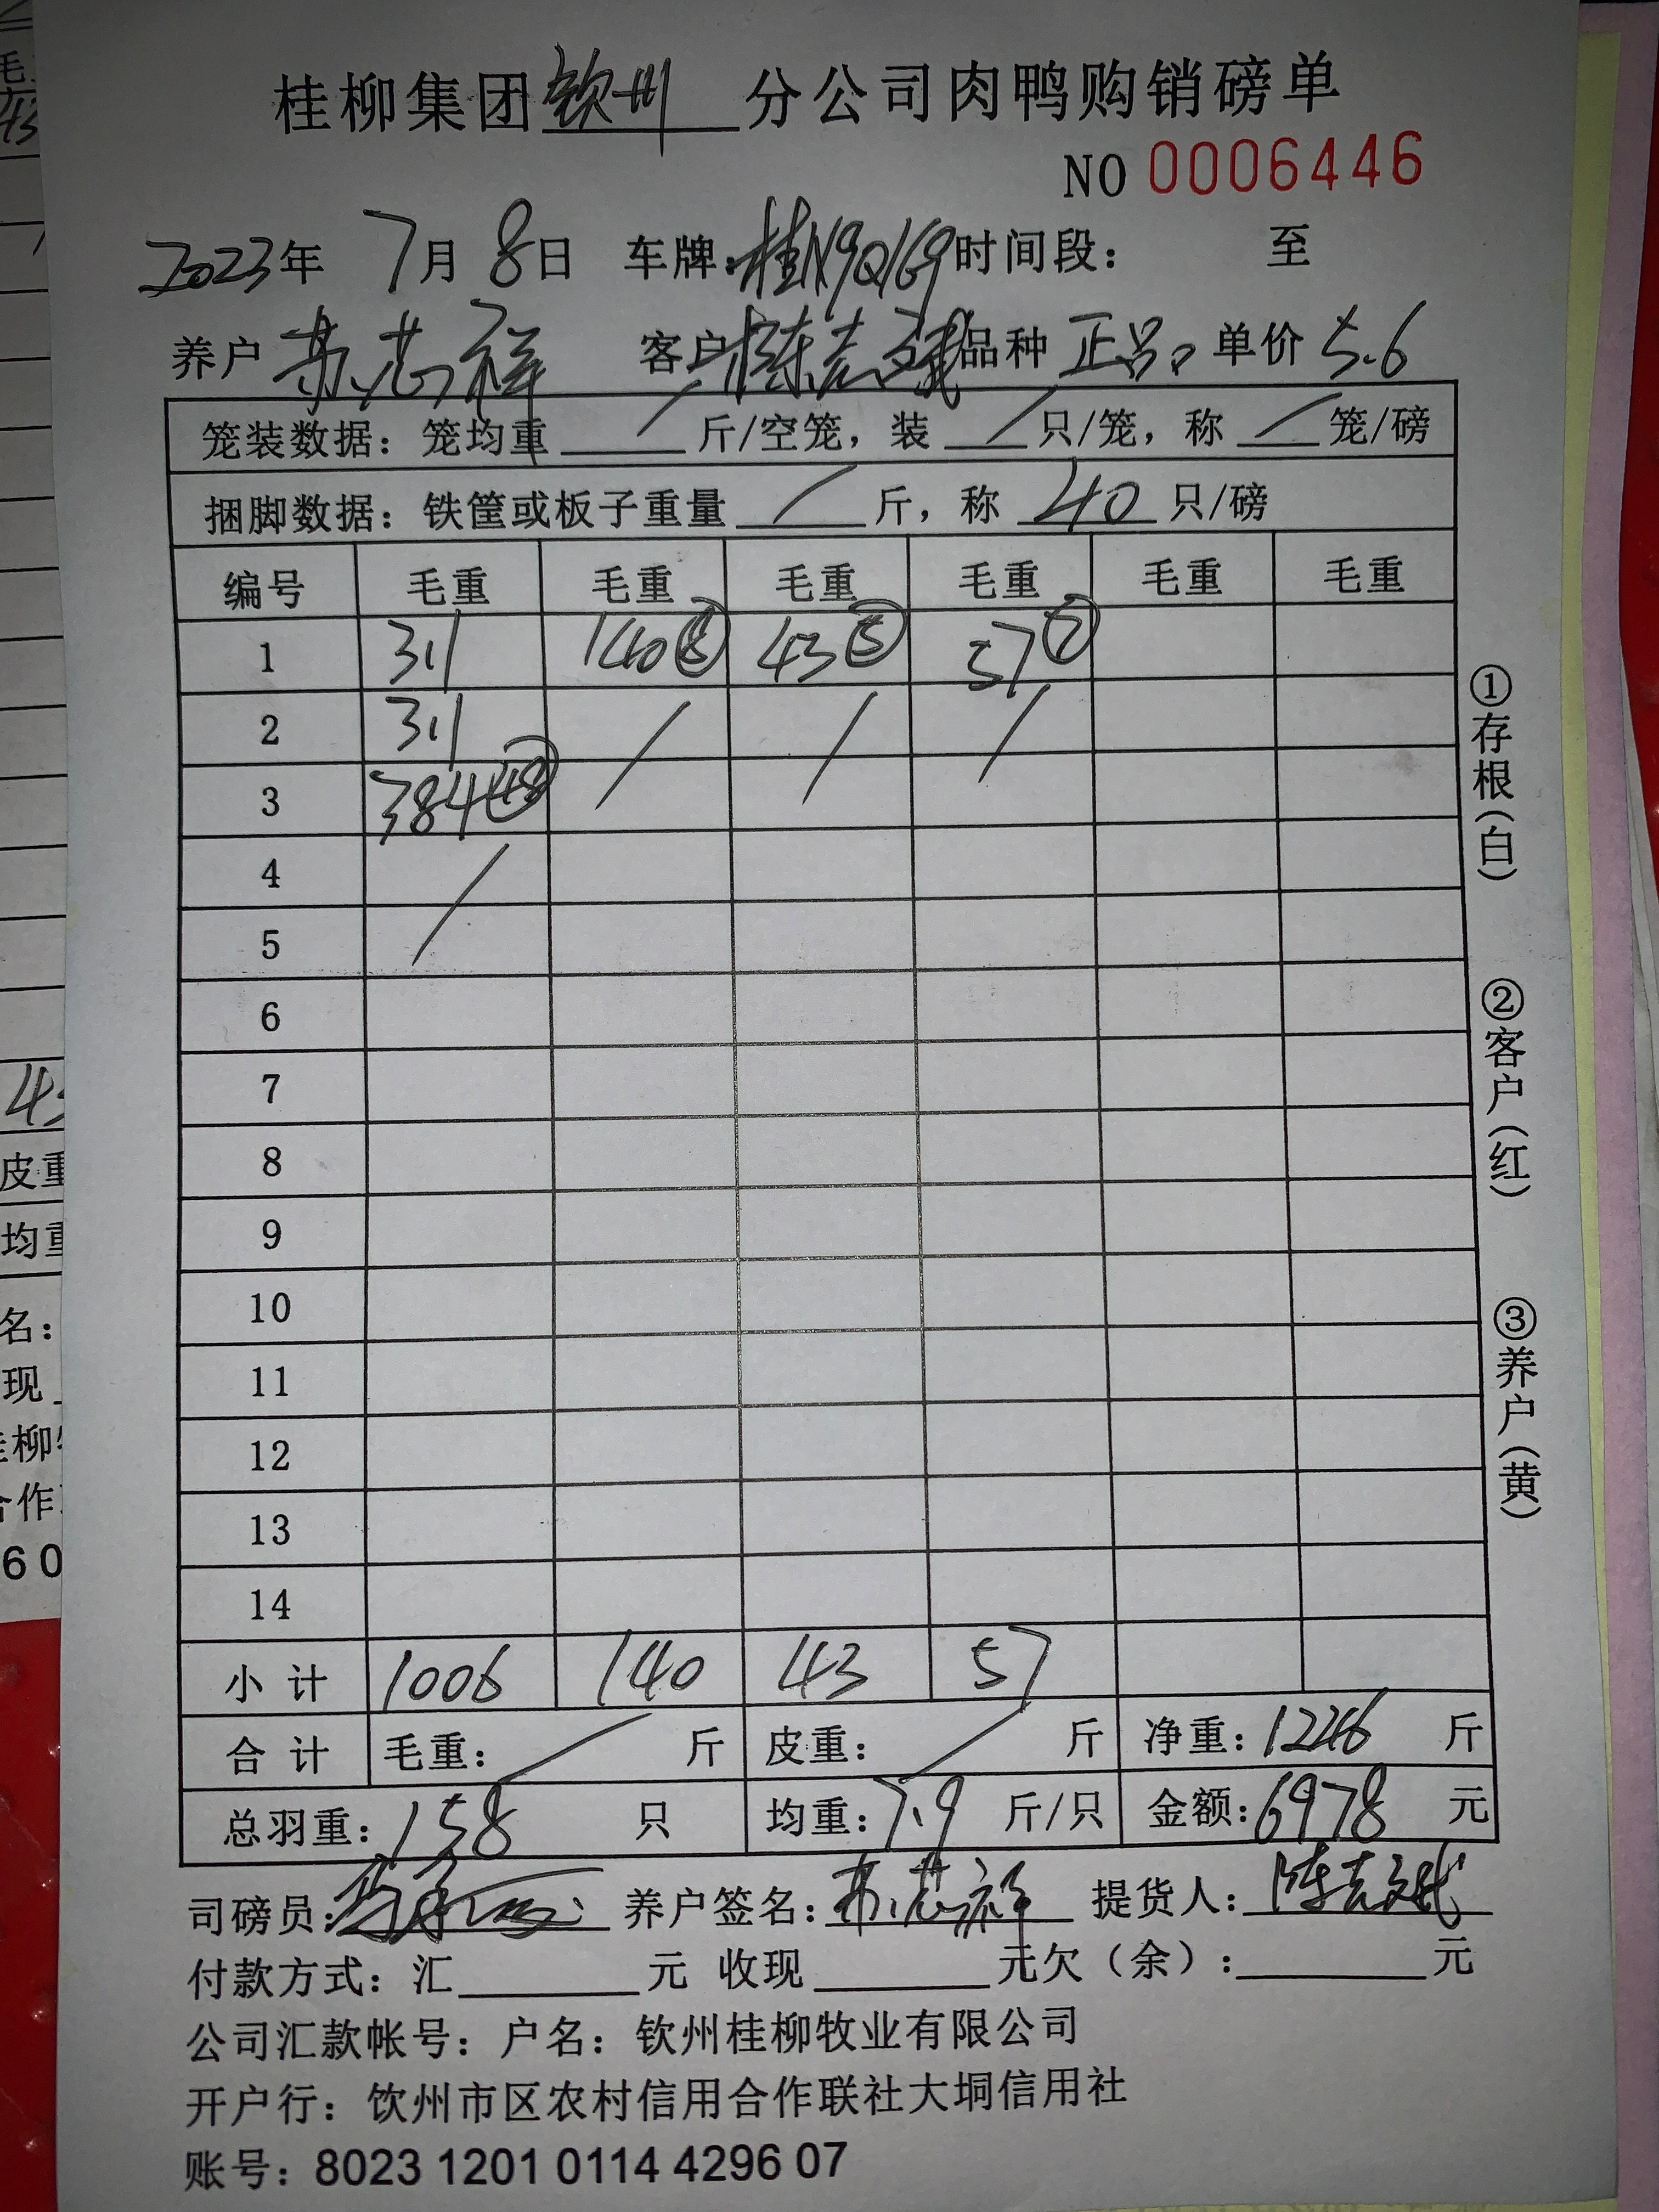 桂柳集团钦州分公司肉鸭购销磅单
NO 0006446
2023年 7月 8日 车牌:桂N9Q169 时间段: 至
养户 苏芯祥 客户 陈志斌 品种 正品 单价 5.6
笼装数据: 笼均重 / 斤/空笼, 装 / 只/笼, 称 / 笼/磅
捆脚数据: 铁筐或板子重量 / 斤, 称 40 只/磅
编号 毛重 毛重 毛重 毛重 毛重 毛重
1 311 140 43 ⑤ 57 ⑦
2 311 / / /
3 384 ㊽
4 /
5
6
7
8
9
10
11
12
13
14
小计 1006 140 43 57
合计 毛重: / 斤 皮重: / 斤 净重: 1246 斤
总羽重: 158 只 均重: 7.9 斤/只 金额: 6978 元
司磅员: 养户签名: 苏芯祥 提货人: 陈志斌
付款方式: 汇 元 收现 元欠(余): 元
公司汇款帐号: 户名: 钦州桂柳牧业有限公司
开户行: 钦州市区农村信用合作联社大垌信用社
账号: 8023 1201 0114 4296 07
①存根(白)
②客户(红)
③养户(黄)